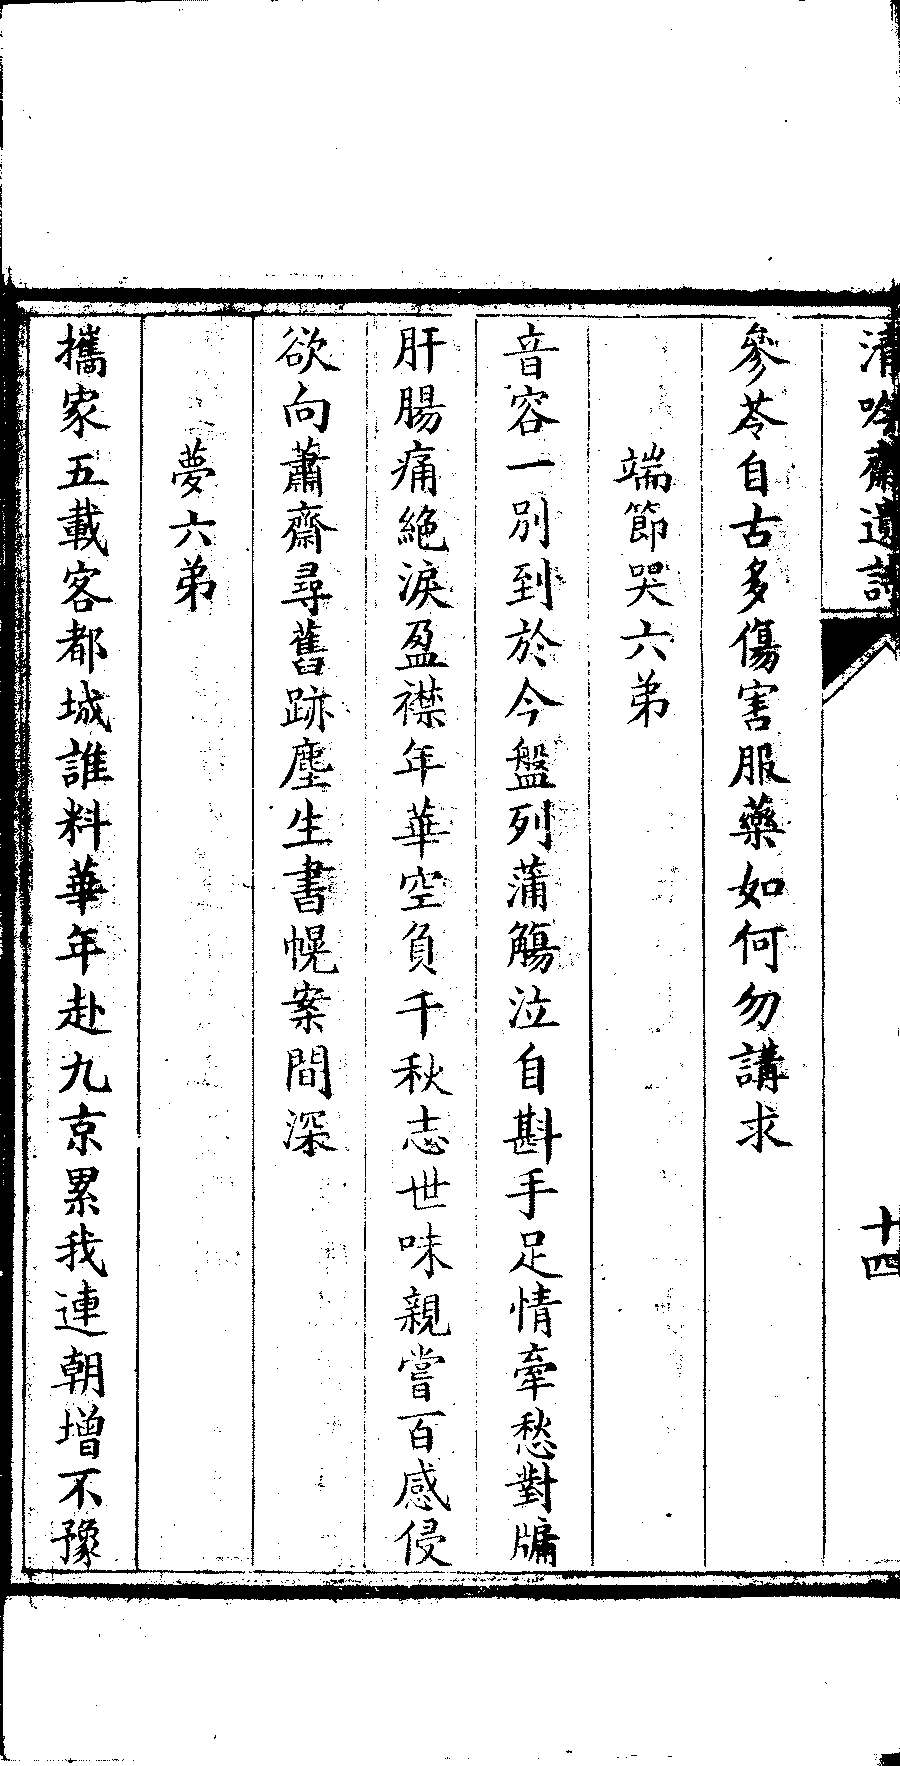 清吟齋遺詩
十四
參苓自古多傷害服藥如何勿講求
端節哭六弟
音容一別到於今盤列蒲觴泣自斟手足情牽愁對牖
肝腸痛絕淚盈襟年華空負千秋志世味親嘗百感侵
欲向蕭齋尋舊跡塵生書幌案間深
夢六弟
攜家五載客都城誰料華年赴九京累我連朝增不豫